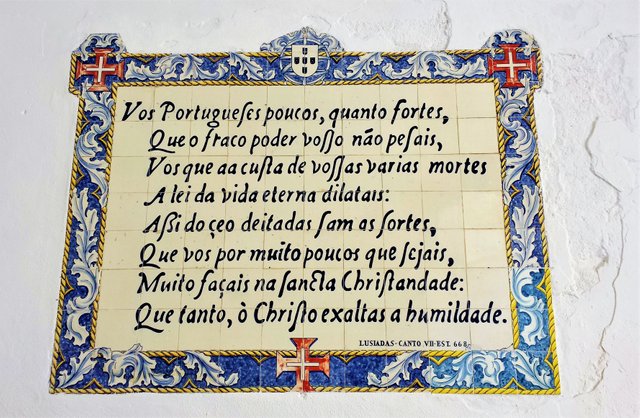 Vos Portugueſes poucos, quanto fortes,
Que o fraco poder voſſo não peſais,
Vos que aa cuſta de voſſas varias mortes
A lei da vida eterna dilatais:
Aſſi do çeo deitadas ſam as ſortes,
Que vos por muito poucos que ſejais,
Muito façais na ſancta Chriſtandade:
Que tanto, ò Chriſto exaltas a humildade.
LUSIADAS-CANTO VII-EST. 668-